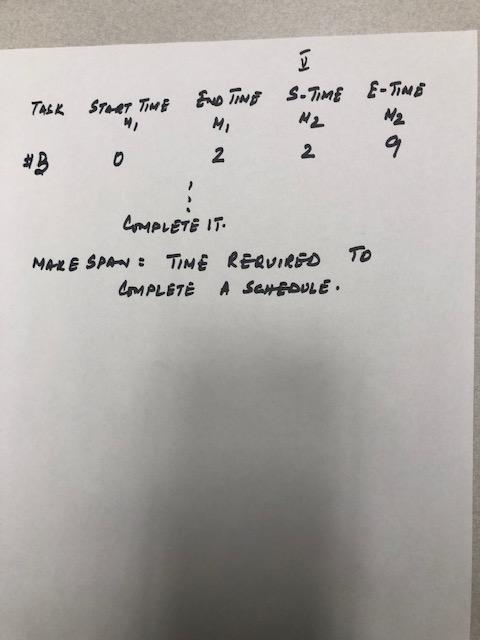 V
TASK START TIME END TIME S-TIME E-TIME
M1 M1 M2 M2
#B 0 2 2 9
⋮
COMPLETE IT.
MAKE SPAN: TIME REQUIRED TO
COMPLETE A SCHEDULE.